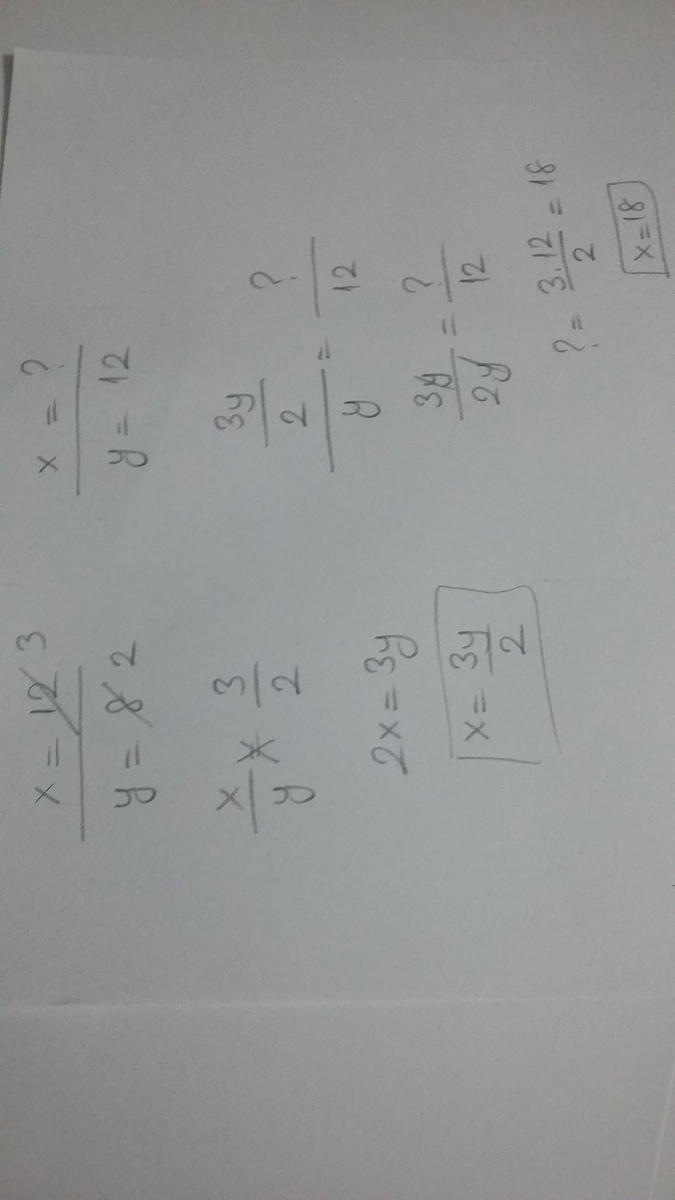 x = 12 3
y = 8 2
x/y × 3/2
2x = 3y
x = 3y/2
x = ?
y = 12
3y/2 / y = ?/12
3y/2y = ?/12
? = 3.12/2 = 18
x = 18